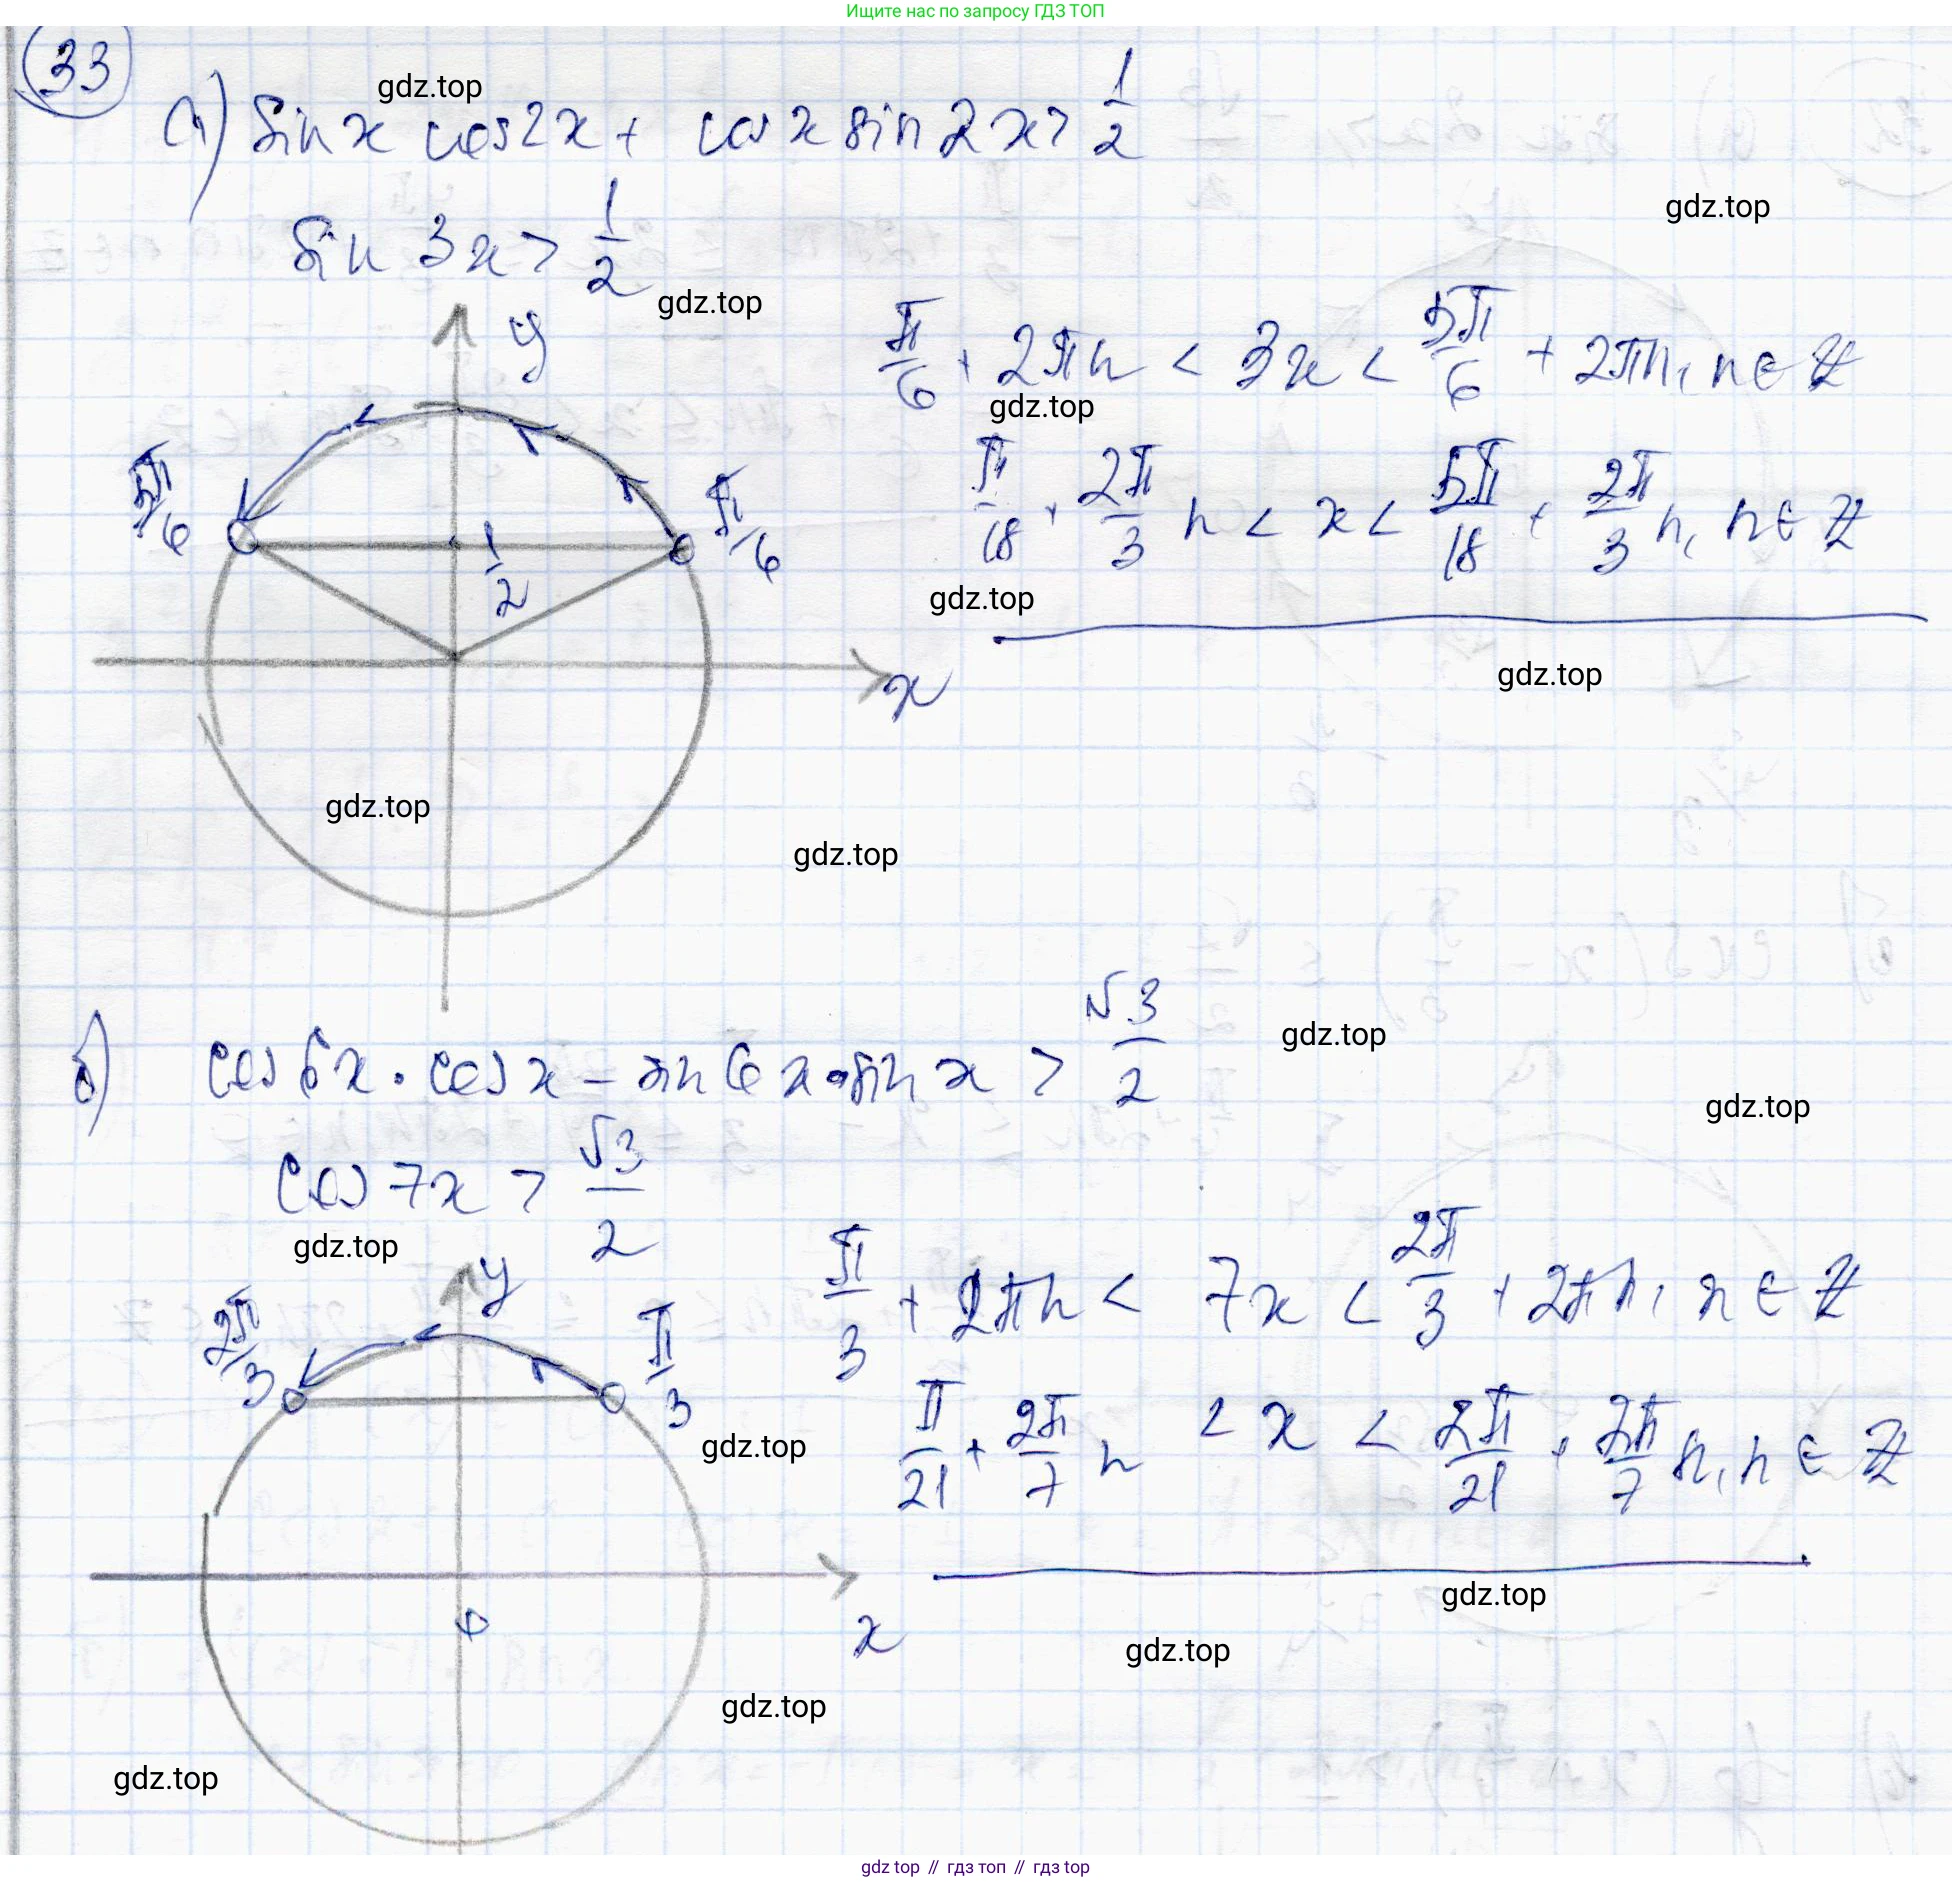 Ищите нас по запросу ГДЗ ТОП
33
gdz.top
а) sin x cos 2x + cos x sin 2x > 1/2
gdz.top
sin 3x > 1/2
gdz.top
y
π/6 + 2πn < 3x < 5π/6 + 2πn, n ∈ Z
gdz.top
π/18 + 2π/3 n < x < 5π/18 + 2π/3 n, n ∈ Z
5π/6
π/6
1/2
gdz.top
x
gdz.top
gdz.top
gdz.top
б) cos 6x · cos x − sin 6x · sin x > √3/2
gdz.top
gdz.top
cos 7x > √3/2
gdz.top
y
π/3 + 2πn < 7x < 2π/3 + 2πn, n ∈ Z
2π/3
π/3
gdz.top
π/21 + 2π/7 n < x < 2π/21 + 2π/7 n, n ∈ Z
gdz.top
x
gdz.top
gdz.top
gdz.top
gdz top // гдз топ // гдз top